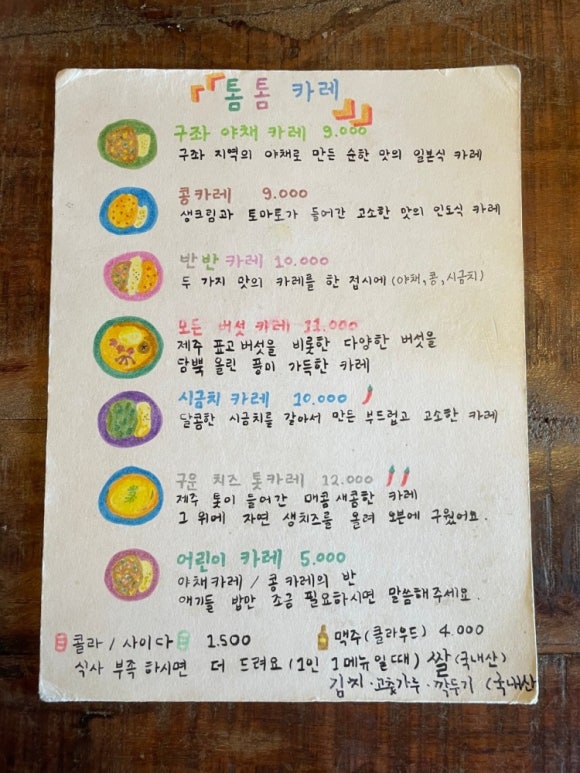 「톰톰 카레」
구좌 야채 카레 9.000
구좌 지역의 야채로 만든 순한 맛의 일본식 카레
콩카레 9.000
생크림과 토마토가 들어간 고소한 맛의 인도식 카레
반반 카레 10.000
두 가지 맛의 카레를 한 접시에 (야채, 콩, 시금치)
모든 버섯 카레 11.000
제주 표고버섯을 비롯한 다양한 버섯을
담뿍 올린 풍미 가득한 카레
시금치 카레 10.000
달콤한 시금치를 갈아서 만든 부드럽고 고소한 카레
구운 치즈 톳카레 12.000
제주 톳이 들어간 매콤새콤한 카레
그 위에 자연 생치즈를 올려 오븐에 구웠어요.
어린이 카레 5.000
야채카레 / 콩카레의 반
애기들 밥만 조금 필요하시면 말씀해주세요.
콜라 / 사이다 1.500 맥주(클라우드) 4.000
식사 부족 하시면 더 드려요 (1인 1메뉴일때) 쌀(국내산)
김치·고춧가루·깍두기 (국내산